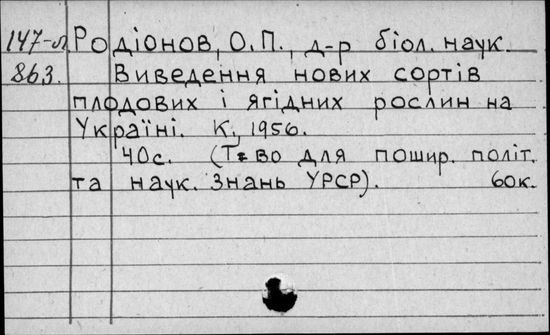 147-л Родіонов, О.П., д-р біол. наук.
863. Виведення нових сортів
плодових і ягідних рослин на
Україні. К., 1956.
40с. (Т-во для пошир. політ.
та наук. знань УРСР). 60к.